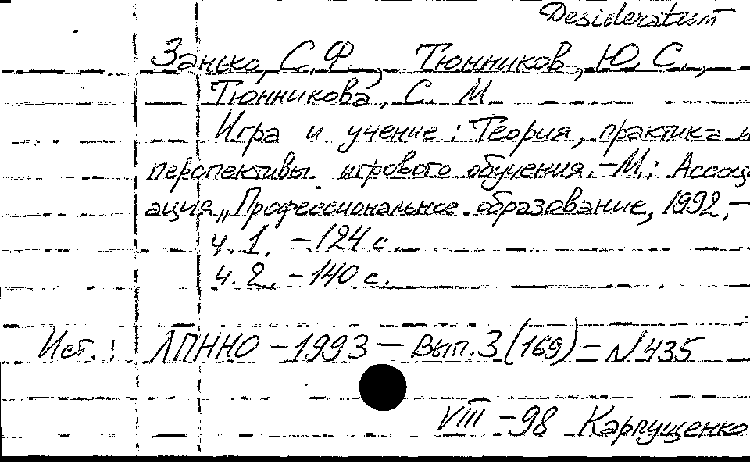 Desideratum
Занько, С. Ф., Тюнников, Ю. С.,
Тюнникова, С. М.
Игра и учение: Теория, практика и
перспективы игрового обучения. – М.: Ассоци
ация „Профессиональное образование, 1992. –
ч. 1. – 124 с.
ч. 2. – 140 с.
Ист.: ЛПННО – 1993 – Вып. 3 (169) – N 435
VIII – 98 Карпущенко